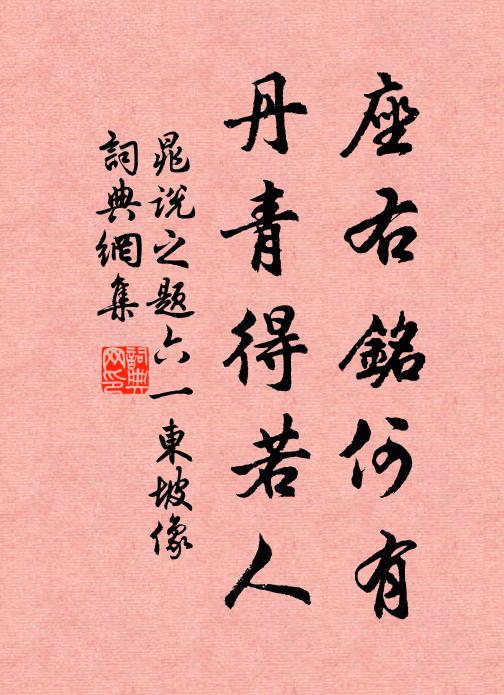 座右銘何有
丹青得若人
晁說之題六一東坡像
詞典網集
詞典網印